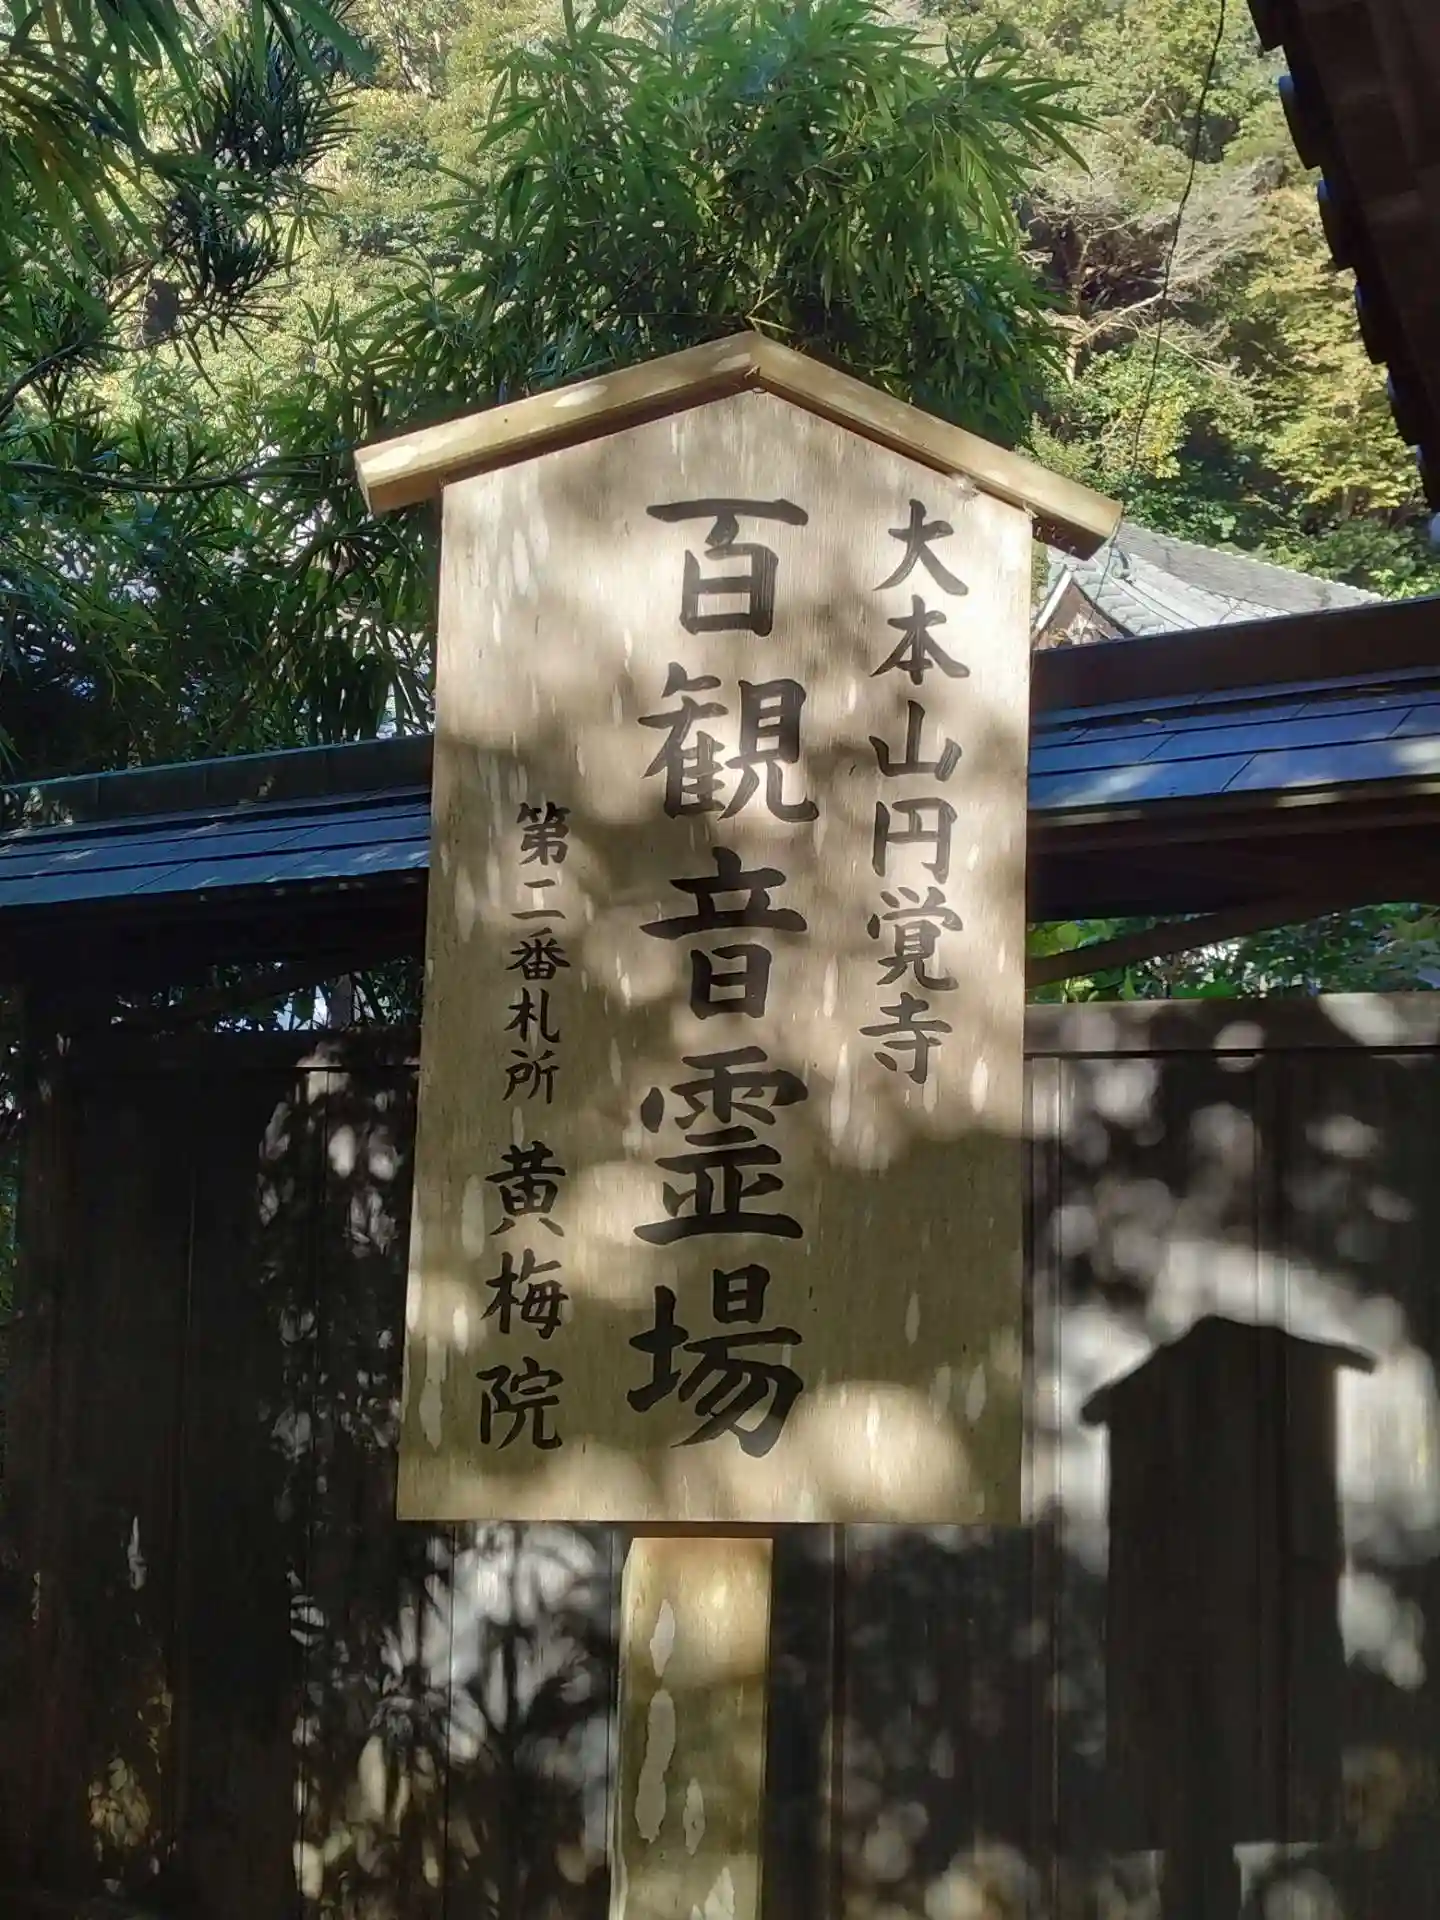 大本山円覚寺
百観音霊場
第二番札所 黄梅院